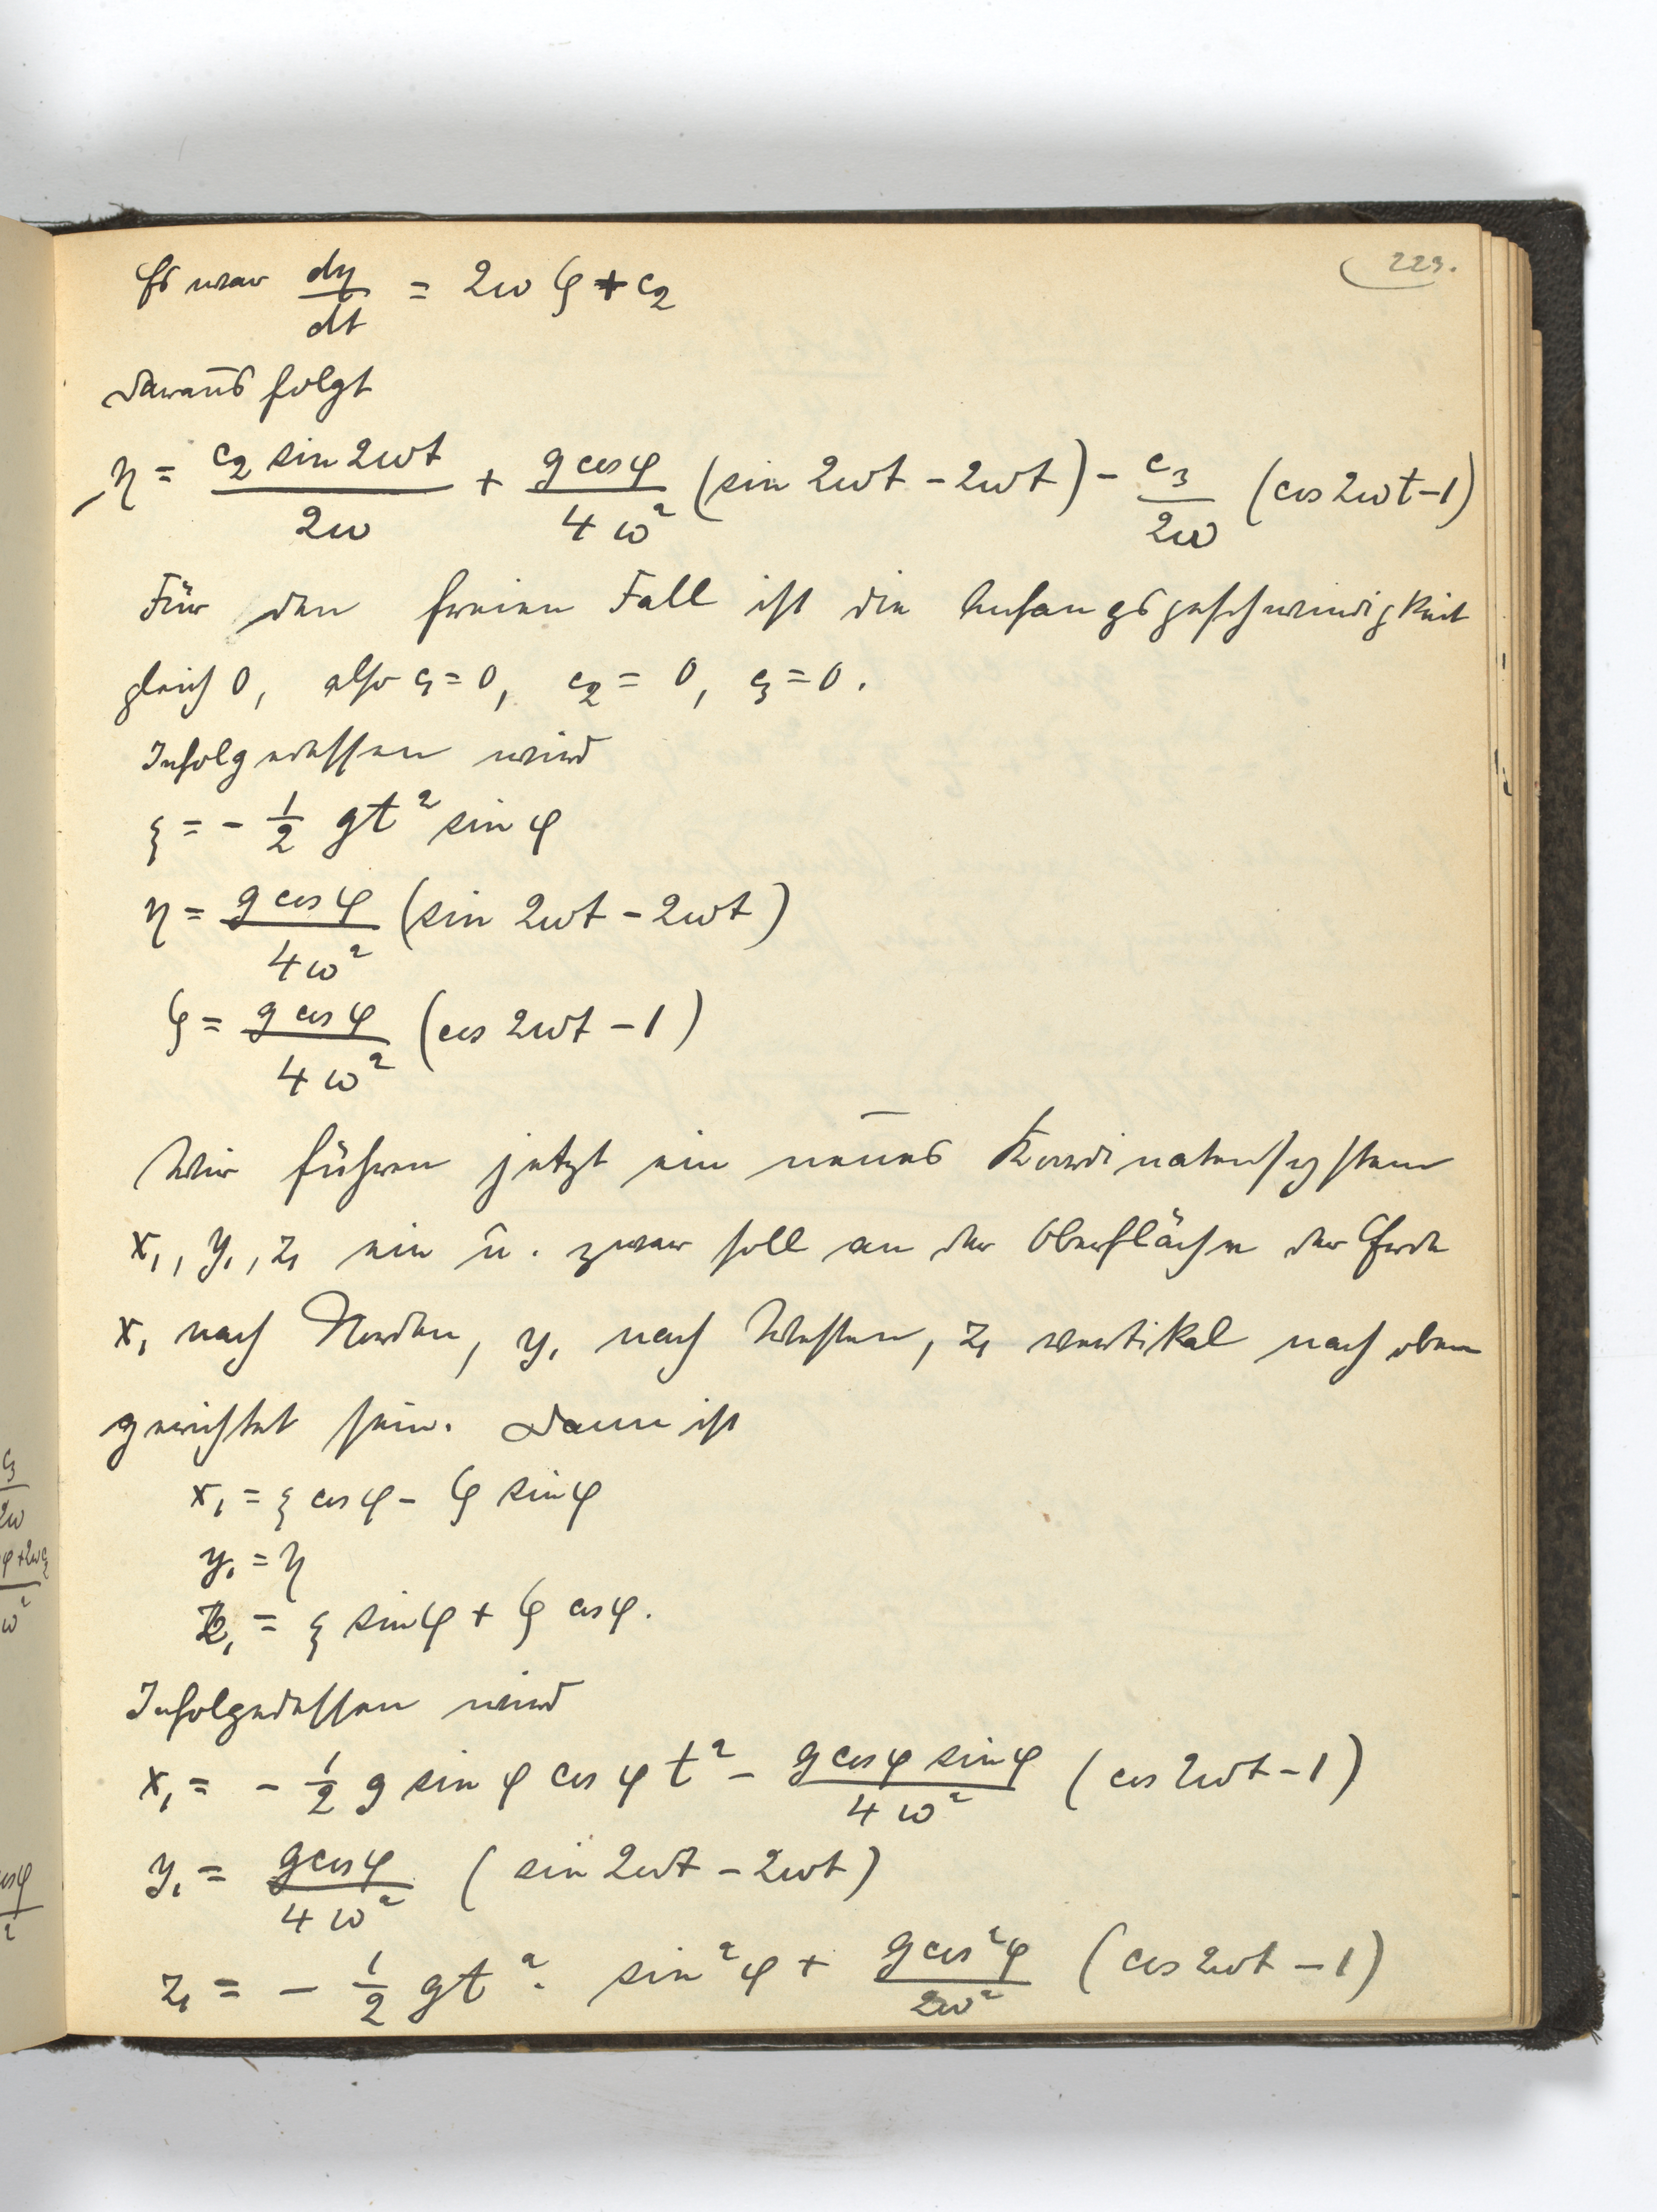 223.
Es war dη/dt = 2ω ζ + c₂
Daraus folgt
η = c₂ sin 2ωt / 2ω + g cos φ / 4ω² (sin 2ωt - 2ωt) - c₃ / 2ω (cos 2ωt - 1)
Für den freien Fall ist die Anfangsgeschwindigkeit
gleich 0, also c₁ = 0, c₂ = 0, c₃ = 0.
Infolgedessen wird
ξ = - 1/2 gt² sin φ
η = g cos φ / 4ω² (sin 2ωt - 2ωt)
ζ = g cos φ / 4ω² (cos 2ωt - 1)
Wir führen jetzt ein neues Koordinatensystem
x₁, y₁, z₁ ein u. zwar soll an der Oberfläche der Erde
x₁ nach Norden, y₁ nach Westen, z₁ vertikal nach oben
gerichtet sein. Dann ist
x₁ = ξ cos φ - ζ sin φ
y₁ = η
z₁ = ξ sin φ + ζ cos φ.
Infolgedessen wird
x₁ = - 1/2 g sin φ cos φ t² - g cos φ sin φ / 4ω² (cos 2ωt - 1)
y₁ = g cos φ / 4ω² (sin 2ωt - 2ωt)
z₁ = - 1/2 gt² · sin² φ + g cos² φ / 2ω² (cos 2ωt - 1)